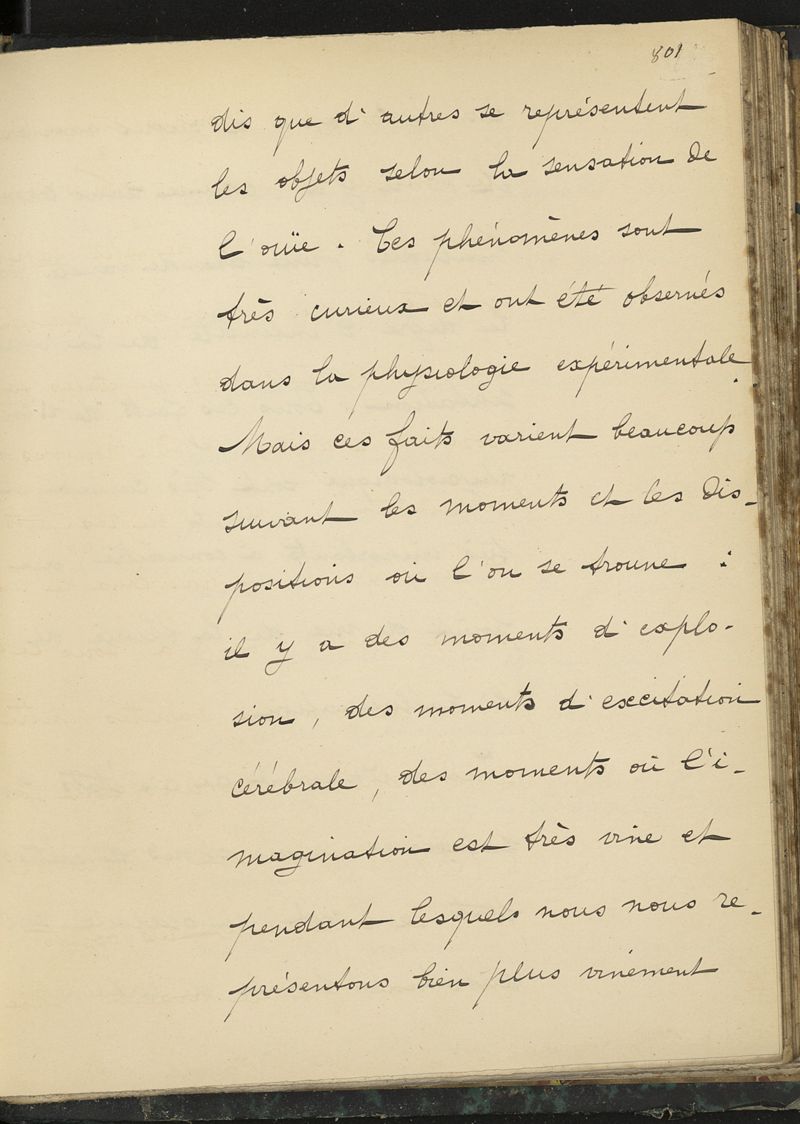 801
dis que d'autres se représentent
les objets selon la sensation de
l'ouïe. Ces phénomènes sont
très curieux et ont été observés
dans la physiologie expérimentale.
Mais ces faits varient beaucoup
suivant les moments et les dis-
positions où l'on se trouve :
il y a des moments d'explo-
sion, des moments d'excitation
cérébrale, des moments où l'i-
magination est très vive et
pendant lesquels nous nous re-
présentons bien plus vivement